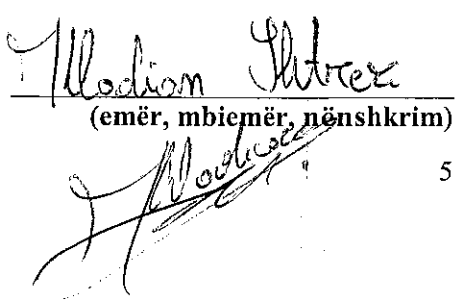 Klodian Shtrez
(emër, mbiemër, nënshkrim)
5